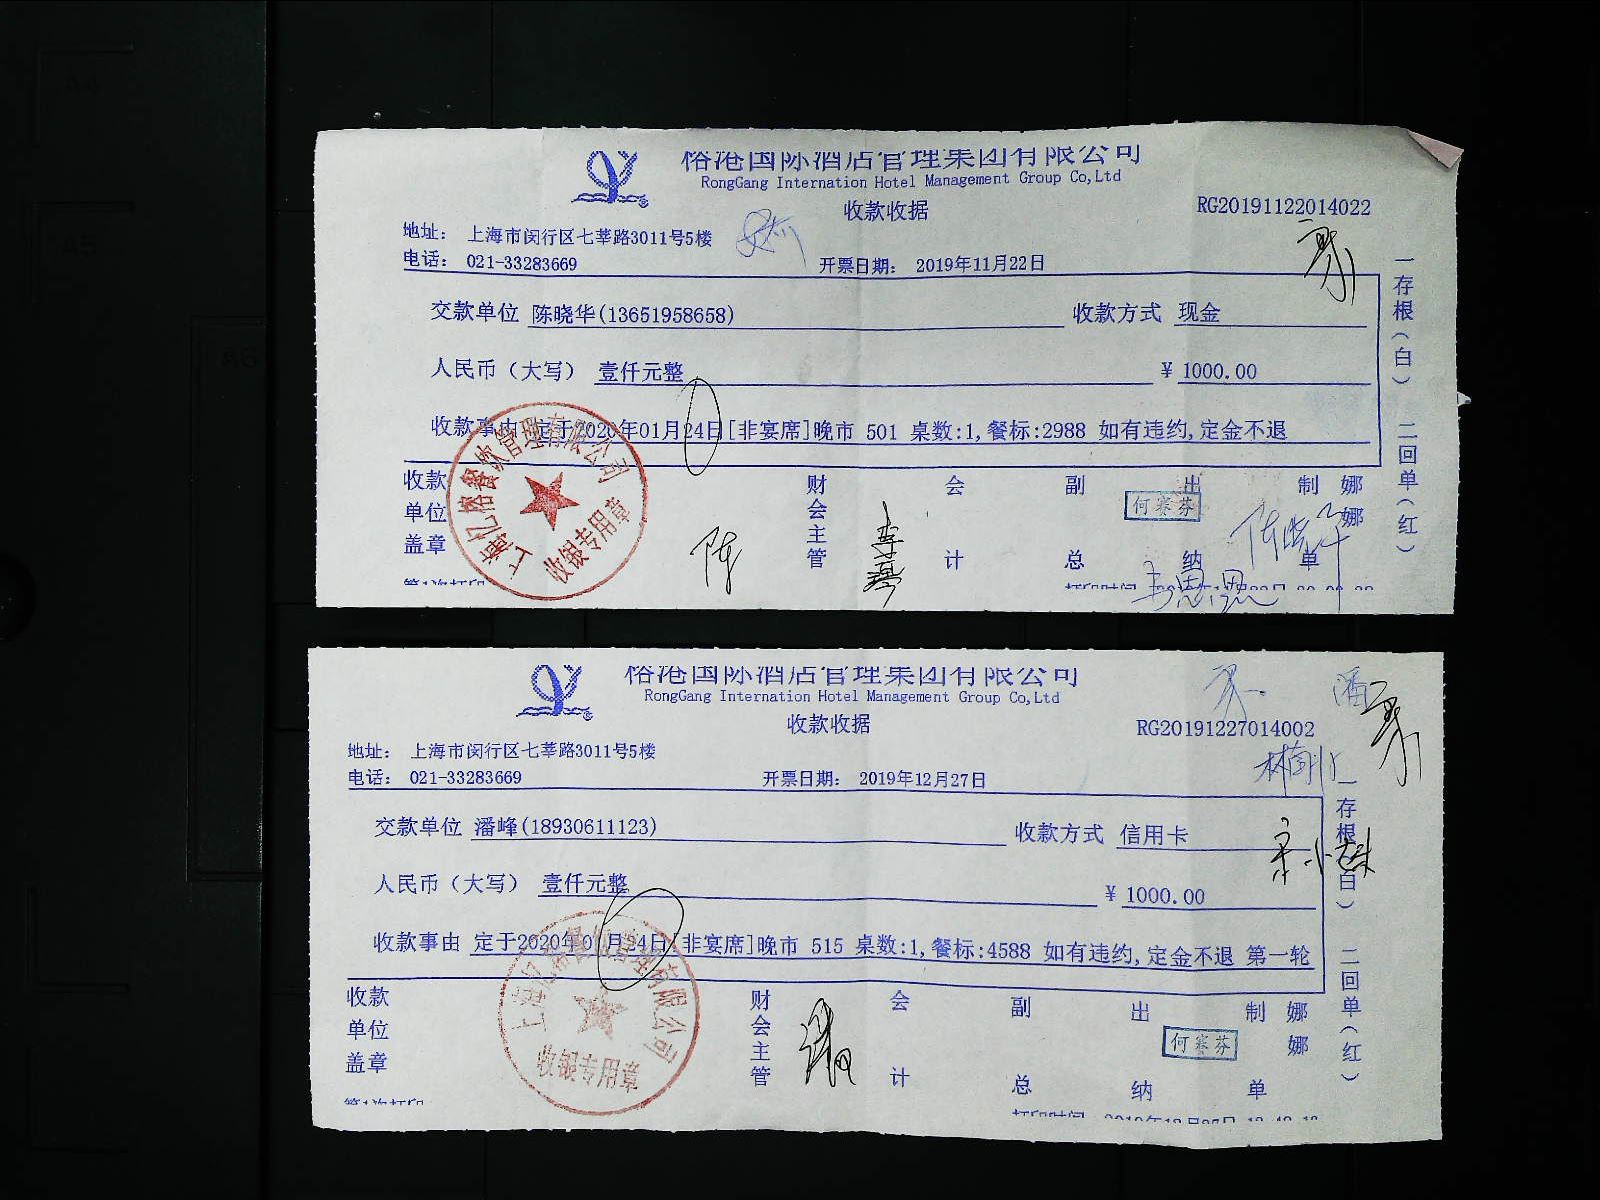 榕港国际酒店管理集团有限公司
RongGang Internation Hotel Management Group Co,Ltd
收款收据
RG20191122014022
地址： 上海市闵行区七莘路3011号5楼
电话： 021-33283669
开票日期： 2019年11月22日
交款单位 陈晓华(13651958658) 收款方式 现金
人民币（大写） 壹仟元整 ¥ 1000.00
收款事由 定于2020年01月24日[非宴席]晚市 501 桌数:1,餐标:2988 如有违约,定金不退
一存根(白) 二回单(红)
收款单位盖章 财会主管 会计 副总 出纳 制单 娜娜
上海亿榕餐饮管理有限公司
收银专用章
何赛芬
陈
陈晓华
榕港国际酒店管理集团有限公司
RongGang Internation Hotel Management Group Co,Ltd
收款收据
RG20191227014002
地址： 上海市闵行区七莘路3011号5楼
电话： 021-33283669
开票日期： 2019年12月27日
交款单位 潘峰(18930611123) 收款方式 信用卡
人民币（大写） 壹仟元整 ¥ 1000.00
收款事由 定于2020年01月24日[非宴席]晚市 515 桌数:1,餐标:4588 如有违约,定金不退 第一轮
一存根(白) 二回单(红)
收款单位盖章 财会主管 会计 副总 出纳 制单 娜娜
上海亿榕餐饮管理有限公司
收银专用章
何赛芬
潘